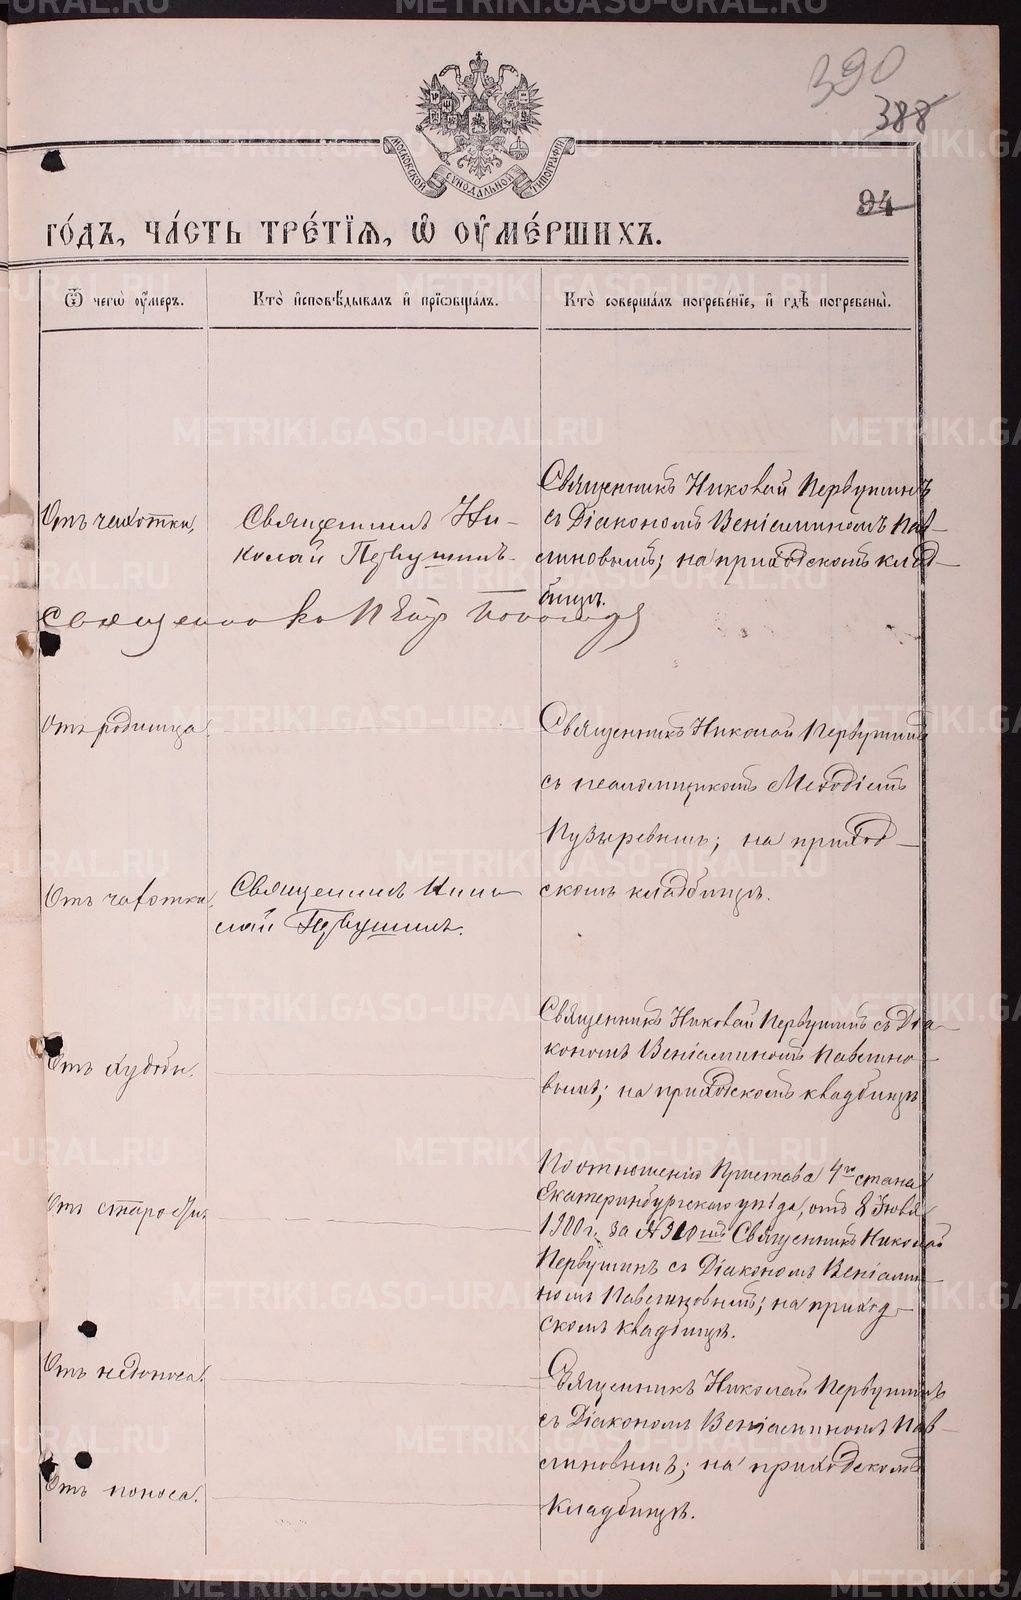 390
388
94
МОСКОВСКОЙ СѴНОДАЛЬНОЙ ТИПОГРАФІИ
ГО́ДЪ, ЧА́СТЬ ТРЕ́ТІЯ, Ѡ҆ ОУ҆МЕ́РШИХЪ.
Ѿ чегѡ̀ оу҆́меръ.
Кто̀ и҆сповѣ́дывалъ и҆ прїѡбща́лъ.
Кто̀ соверша́лъ погребе́нїе, и҆ гдѣ̀ погребены̀.
Отъ чахотки.
Священникъ Ни-
колай Первушинъ.
Священникъ Николай Первушинъ
съ Діакономъ Веніаминомъ Пав-
линовымъ; на приходскомъ клад-
бищѣ.
Отъ родимца.
Священникъ Николай Первушинъ
съ псаломщикомъ Меѳодіемъ
Пузыревымъ; на приход-
скомъ кладбищѣ.
Отъ чахотки.
Священникъ Нико-
лай Первушинъ.
Отъ худобы.
Священникъ Николай Первушинъ съ Діа-
кономъ Веніаминомъ Павлино-
вымъ; на приходскомъ кладбищѣ
Отъ старости
По отношенію Пристава 4го стана
Екатеринбургскаго уѣзда, отъ 8 Іюля
1900 г. за № Священникъ Николай
Первушинъ съ Діакономъ Веніами-
номъ Павлиновымъ; на приход-
скомъ кладбищѣ.
Отъ недоноса.
Священникъ Николай Первушинъ
съ Діакономъ Веніаминомъ Пав-
линовымъ; на приходскомъ
кладбищѣ.
Отъ поноса.
METRIKI.GASO-URAL.RU